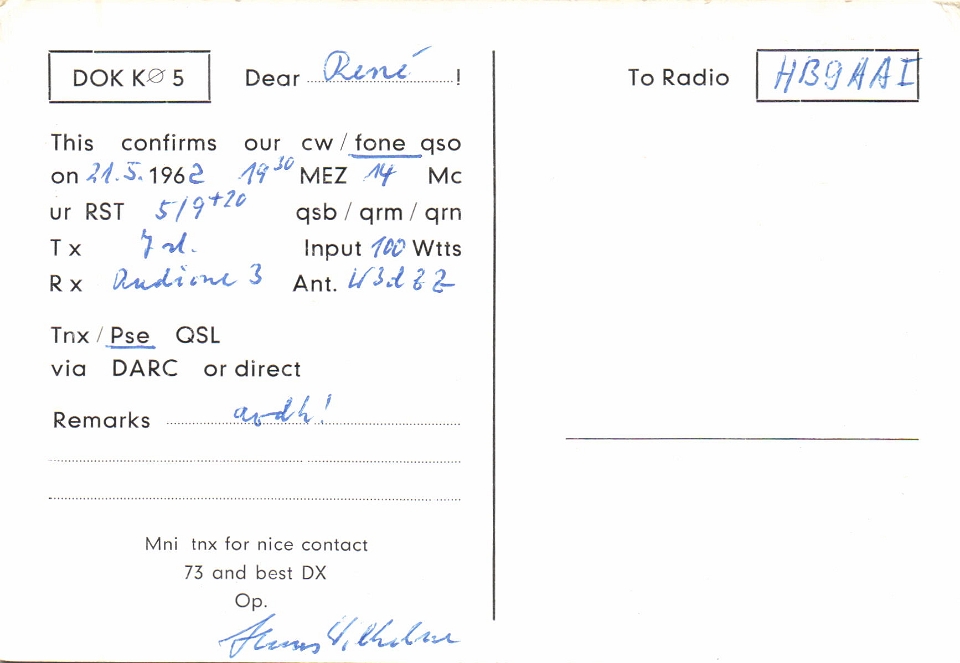 DOK KØ 5
Dear René !
To Radio HB9AAI
This confirms our cw / fone qso
on 21.5.1962 19³⁰ MEZ 14 Mc
ur RST 5/9⁺²⁰ qsb / qrm / qrn
Tx 7 st. Input 100 Wtts
Rx Ant. W3dZZ
Tnx / Pse QSL
via DARC or direct
Remarks
Mni tnx for nice contact
73 and best DX
Op.